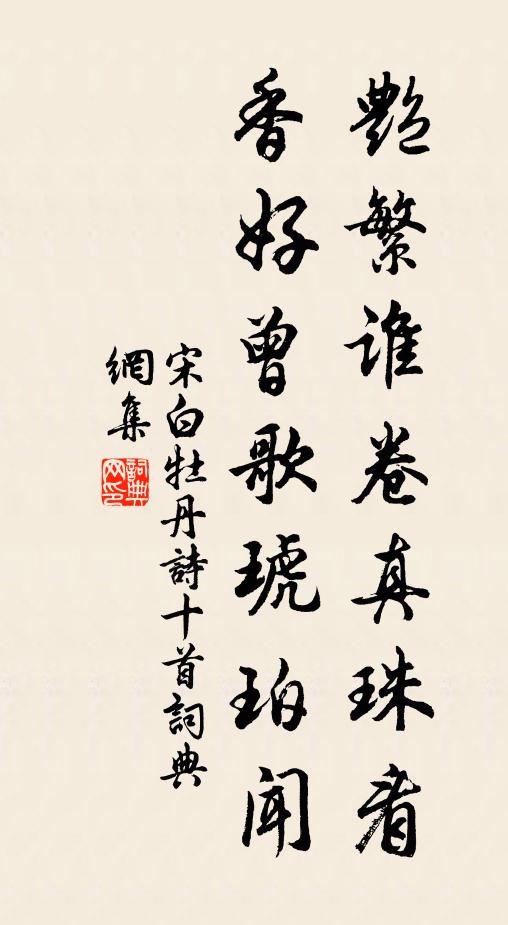 艷繁誰卷真珠看
香好曾歌琥珀聞
宋白牡丹詩十首詞典
網集
詞典网印